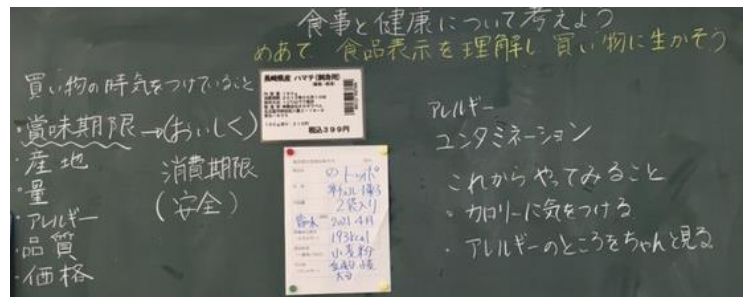 食事と健康について考えよう
めあて 食品表示を理解し買い物に生かそう
買い物の時気をつけていること
・賞味期限→(おいしく)
・産地
・量
・アレルギー
・品質
・価格
消費期限
(安全)
長崎県産 ハマチ(刺身用)
税込399円
のトッポ
2袋入り
賞味 2021 4月
193kcal
小麦粉
アレルギー
コンタミネーション
これからやってみること
・カロリーに気をつける
・アレルギーのところをちゃんと見る